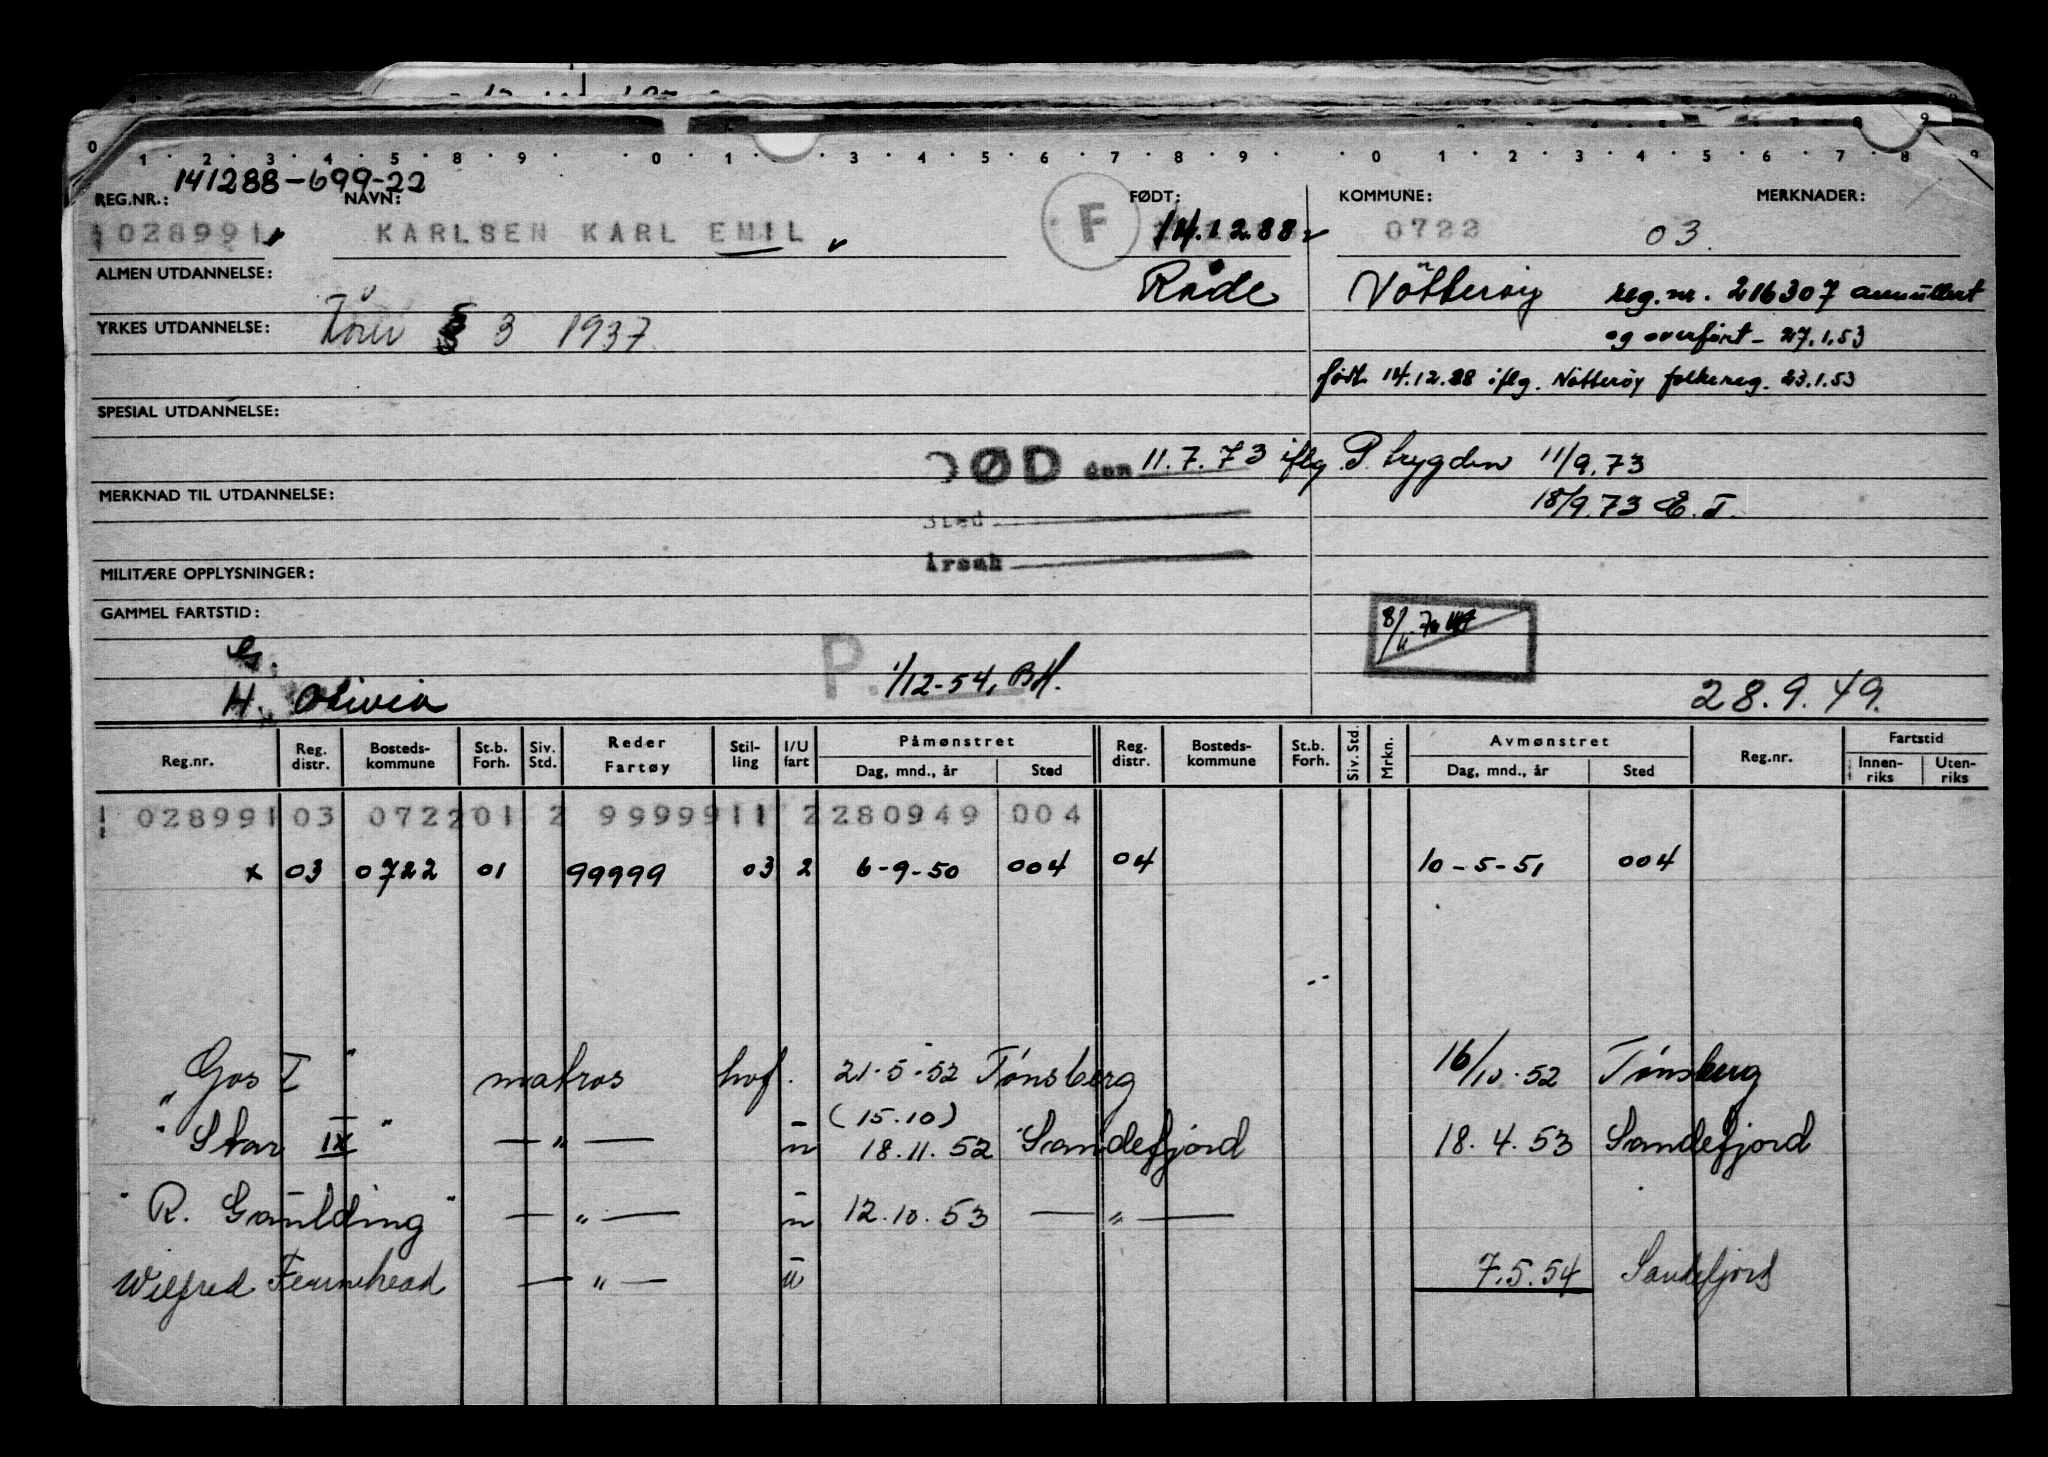 0 1 2 3 4 5 8 9 0 1 3 4 5 6 7 8 9 0 1 2 3 4 5 6 7 8 9
141288-699-22
REG.NR.: NAVN: FØDT: KOMMUNE: MERKNADER:
028991 KARLSEN KARL EMIL F 14.12.88 0722 03.
ALMEN UTDANNELSE: Råde Nötteröy reg.nr. 216307 annullert
YRKES UTDANNELSE: § 3 1937 og overført - 27.1.53
født 14.12.88 iflg. Nötteröy folkereg. 23.1.53
SPESIAL UTDANNELSE:
DØD den 11.7.73 iflg. P. trygden 11/9.73
MERKNAD TIL UTDANNELSE: 18/9.73 E.T.
Sted
Årsak
MILITÆRE OPPLYSNINGER:
GAMMEL FARTSTID:
G. P. 1/12-54, BH.
H. Olivia 28.9.49.
Reg.nr. Reg. distr. Bosteds-kommune St.b. Forh. Siv. Std. Reder Fartøy Stil-ling I/U fart Påmønstret Dag, mnd., år Sted Reg. distr. Bosteds-kommune St.b. Forh. Siv. Std. Mrkn. Avmønstret Dag, mnd., år Sted Reg.nr. Fartstid Innen-riks Uten-riks
028991 03 0722 01 2 99999 11 2 280949 004
x 03 0722 01 99999 03 2 6-9-50 004 04 10-5-51 004
"Gos I" matros hvf. 21-5-52 Tønsberg 16/10.52 Tønsberg
(15.10)
"Star IX" — " — " 18.11.52 Sandefjord 18.4.53 Sandefjord
"R. Gaulding" — " — " 12.10.53 — " —
Wilfred Fearnhead — " — " 7.5.54 Sandefjord